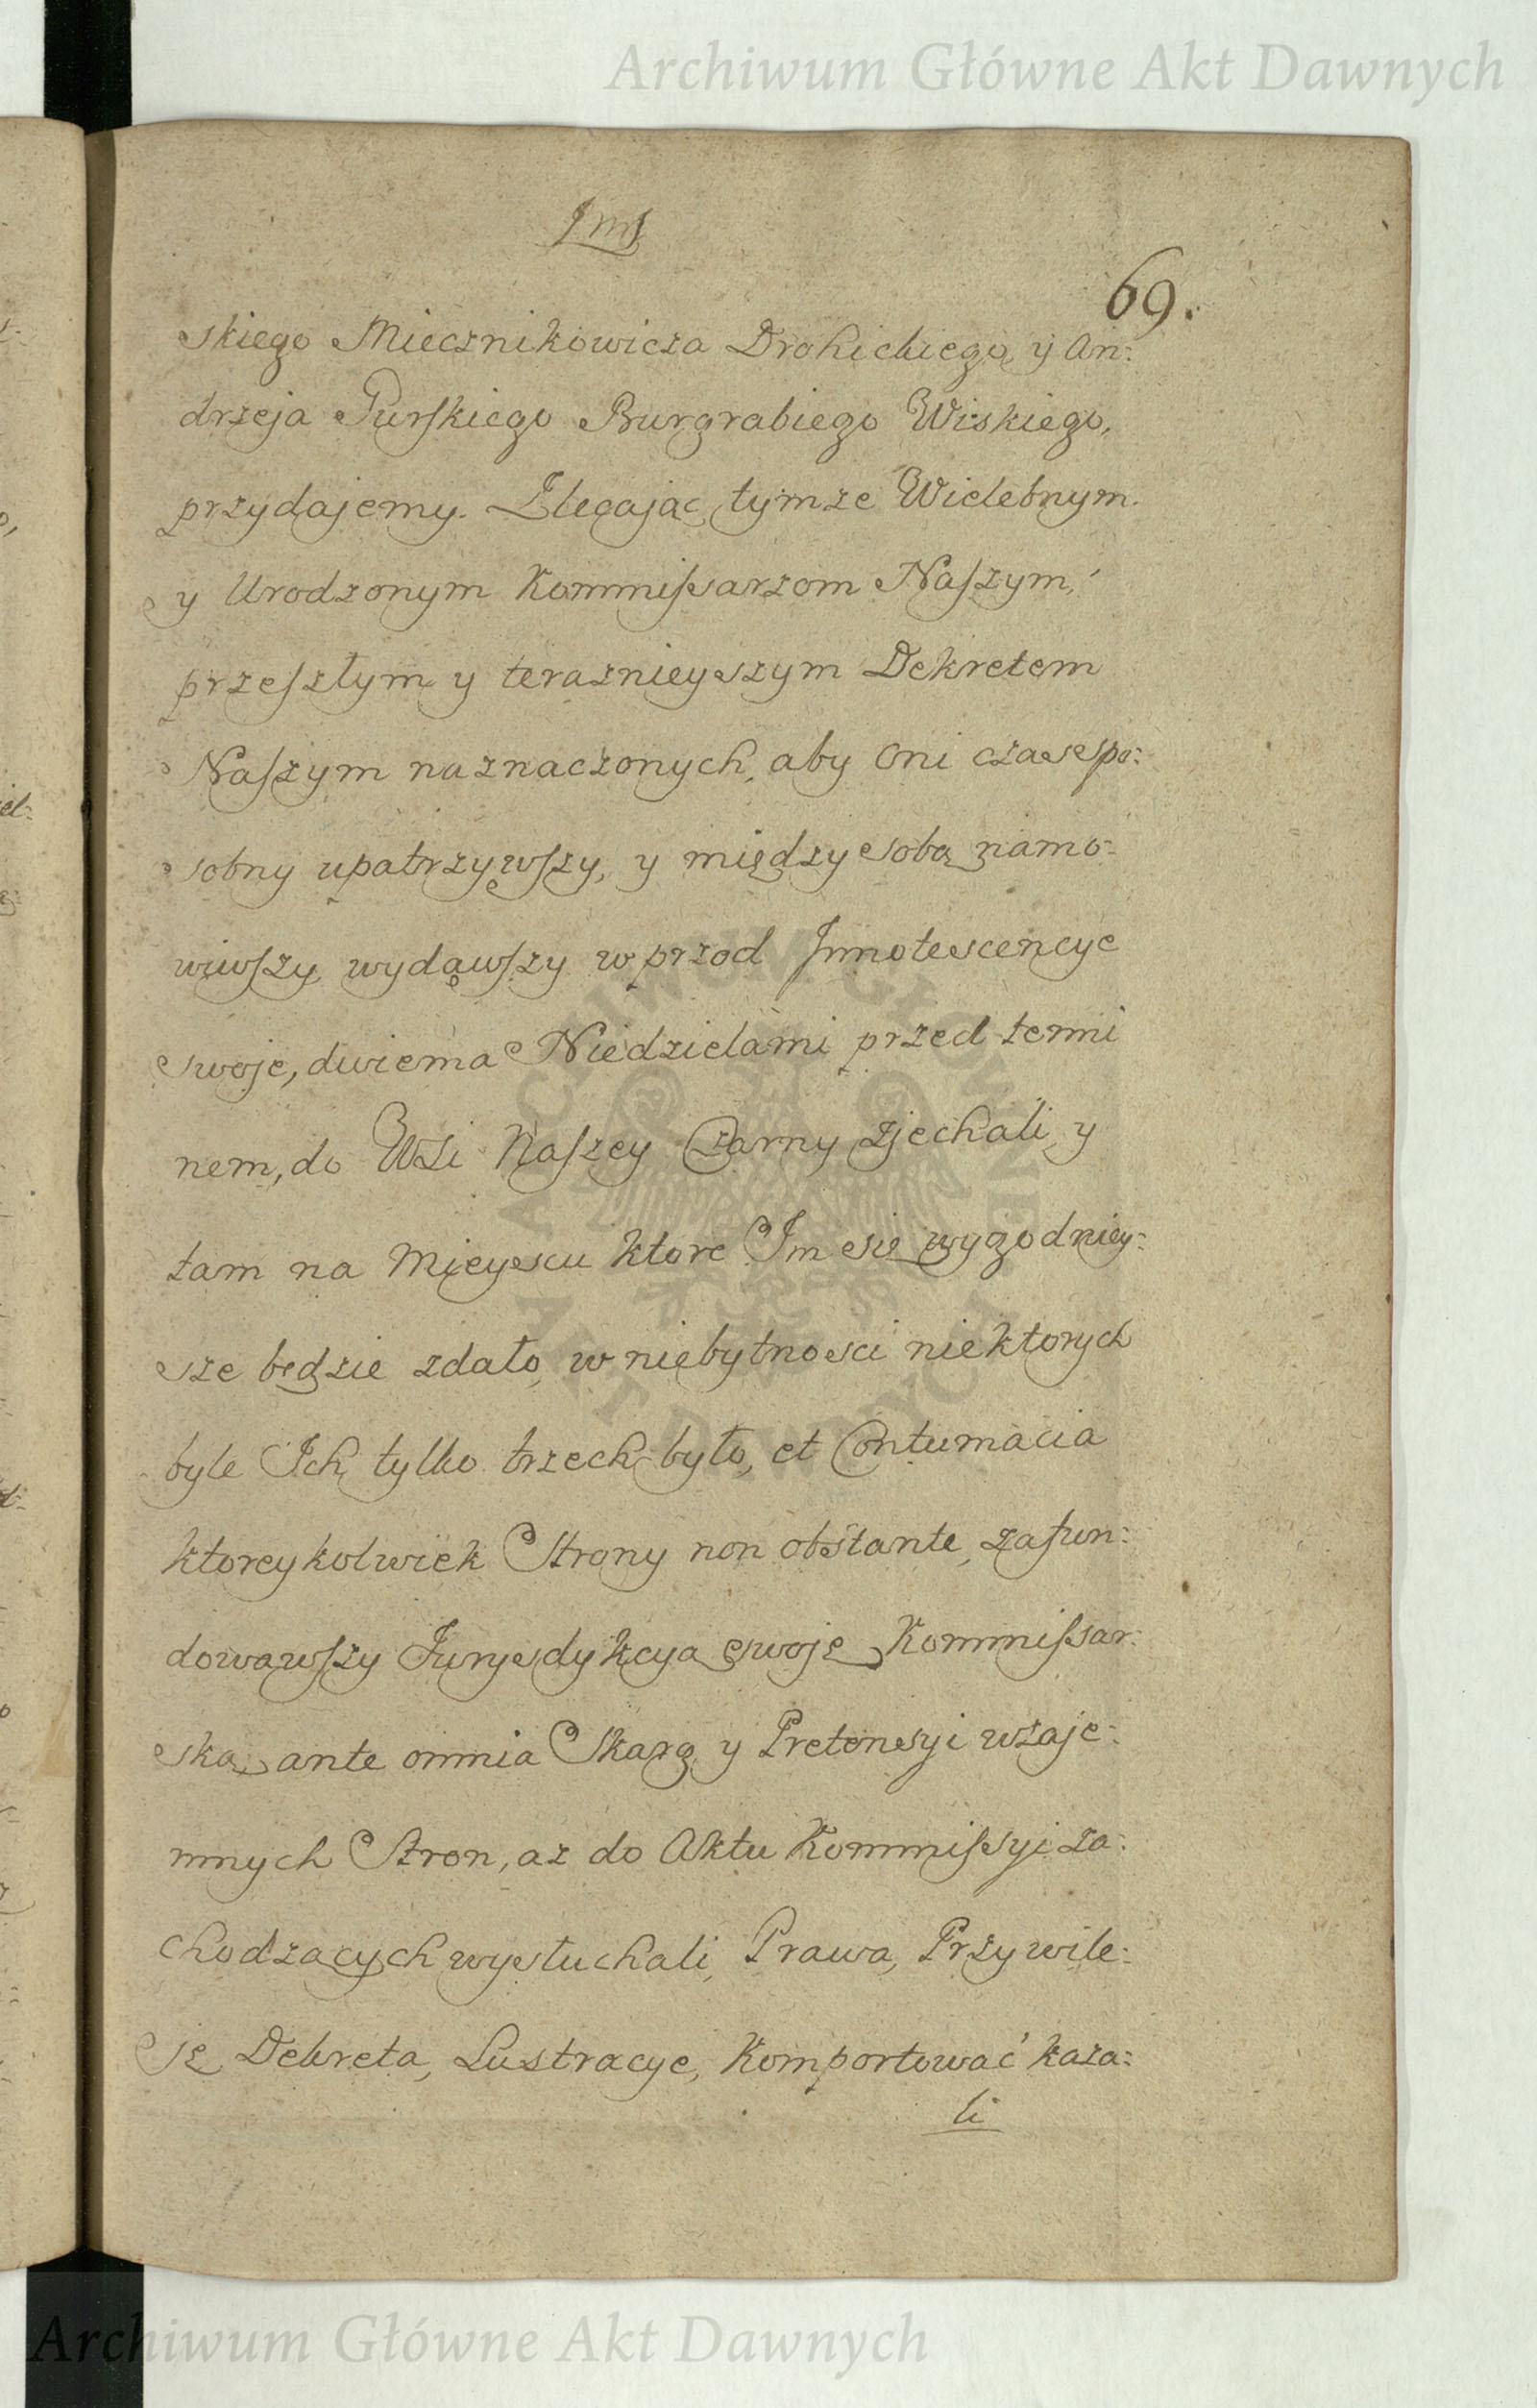 Archiwum Główne Akt Dawnych
69.
skiego Miecznikowicza Drohickiego, y An:
drzeja Purskiego Burgrabiego Wiskiego,
przydajemy. Zlecając tymze Wielebnym
y Urodzonym Kommissarzom Naszym,
przeszłym y teraznieyszym Dekretem
Naszym naznaczonych, aby Oni czas spo:
sobny upatrzywszy, y między sobą namo:
wiwszy, wydawszy w przod Jnnotescencye
swoje, dwiema Niedzielami przed termi
nem, do Wsi Naszey Czarny zjechali y
tam na Mieyscu ktore Jm się wygodniey:
sze będzie zdało, w niebytnosci niektorych
byle Jch tylko trzech było, et Contumacia
ktoreykolwiek Strony non obstante, zafun:
dowawszy Jurysdykcyą swoję Kommissar:
ską, ante omnia Skarg y Pretensyi wzaje:
mnych Stron, az do Aktu Kommissyi za:
chodzących wysłuchali, Prawa, Przywile:
je Dekreta, Lustracye, Komportować kaza:
li
ARCHIWUM GŁÓWNE AKT DAWNYCH
Archiwum Główne Akt Dawnych